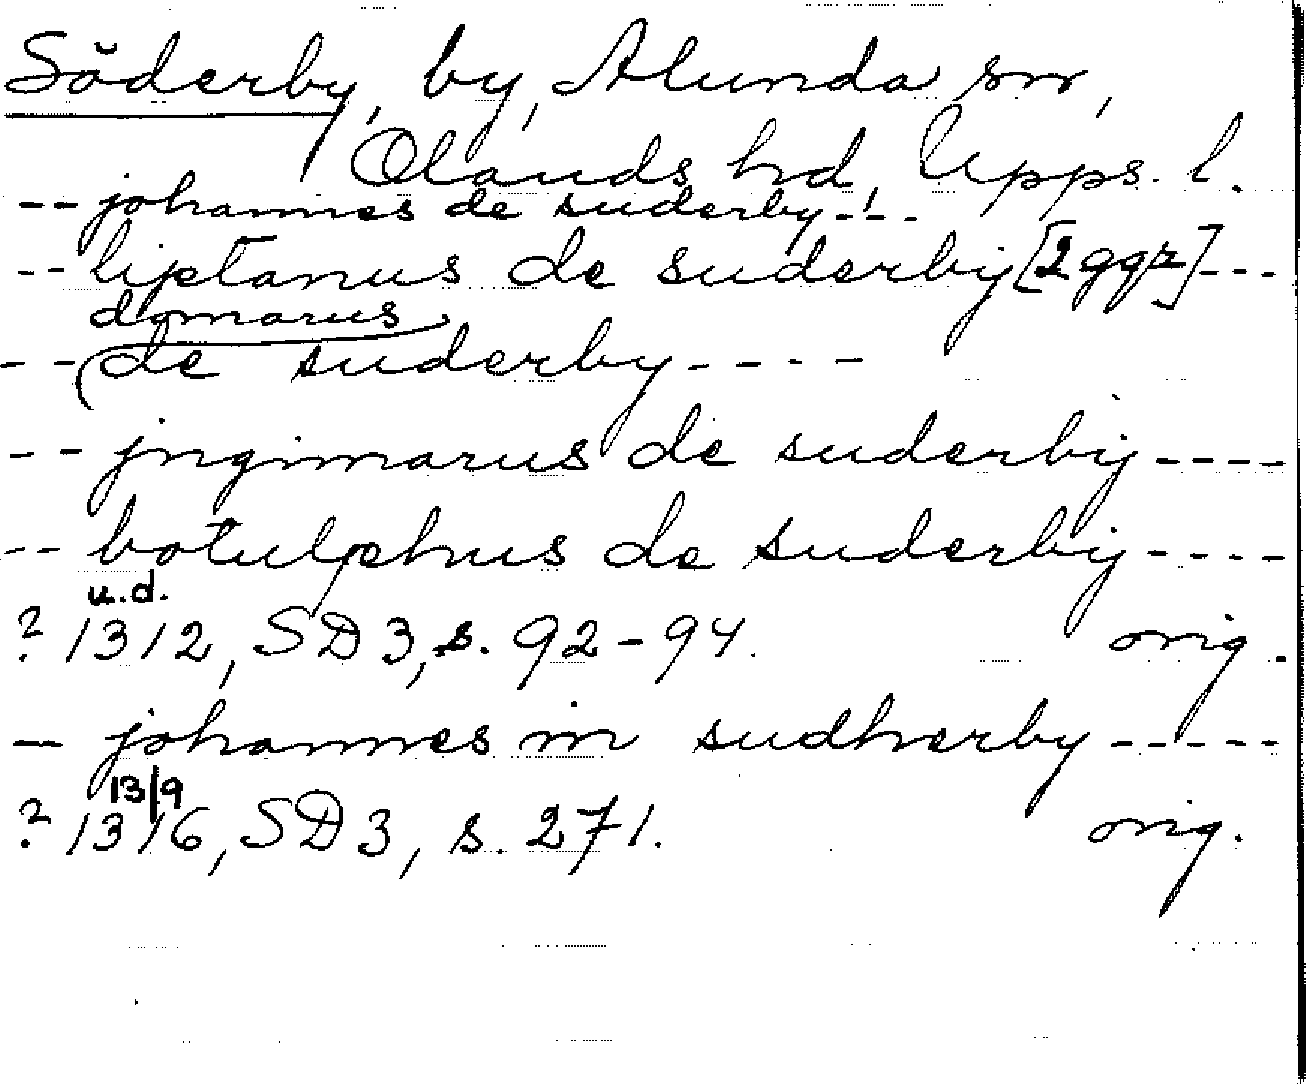 Söderby, by, Alunda sn,
Olands hd, Upps. l.
-- johannes de suderby ---
-- liptanus de suderby [2 ggr] ---
domarus
-- de suderby ----
-- jngimarus de suderby ----
-- botulphus de suderby ----
u.d.
? 1312, SD 3, s. 92-94. orig.
- johannes in sudherby -----
13/9
? 1316, SD 3, s. 271. orig.